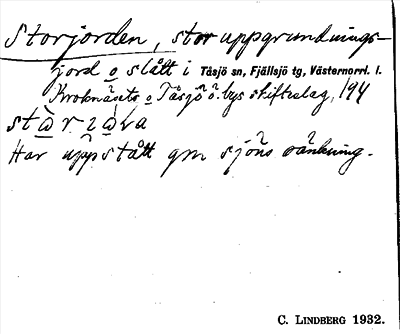 Storjorden, stor uppgrundnings-
jord o slått i Tåsjö sn, Fjällsjö tg, Västernorrl. l.
Kroknäsets o Tåsjö ö. bys skifteslag, 194
Har uppstått gm sjöns sänkning.
C. LINDBERG 1932.